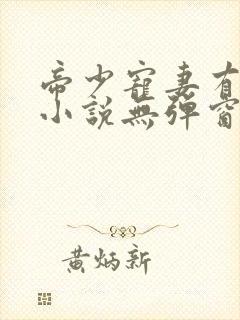 帝少寵妻有
小說無彈窗
黃炳新